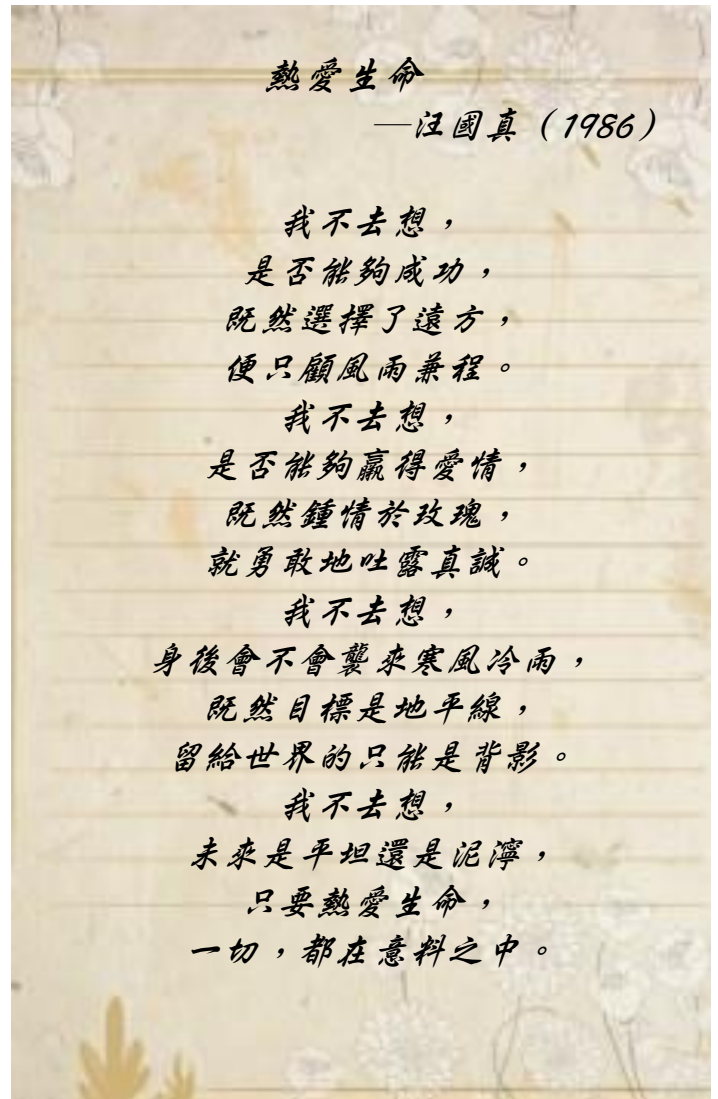 熱愛生命
—汪國真（1986）
我不去想，
是否能夠成功，
既然選擇了遠方，
便只顧風雨兼程。
我不去想，
是否能夠贏得愛情，
既然鍾情於玫瑰，
就勇敢地吐露真誠。
我不去想，
身後會不會襲來寒風冷雨，
既然目標是地平線，
留給世界的只能是背影。
我不去想，
未來是平坦還是泥濘，
只要熱愛生命，
一切，都在意料之中。